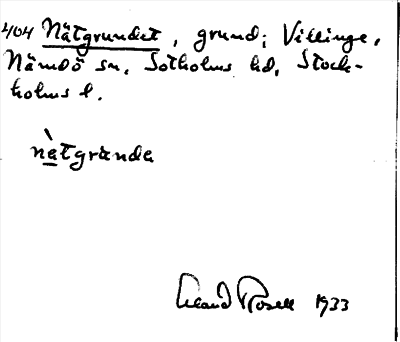 404 Nätgrundet, grund; Villinge,
Nämdö sn, Sotholms hd, Stock-
holms l.
nàtgrànde
Rosell 1933